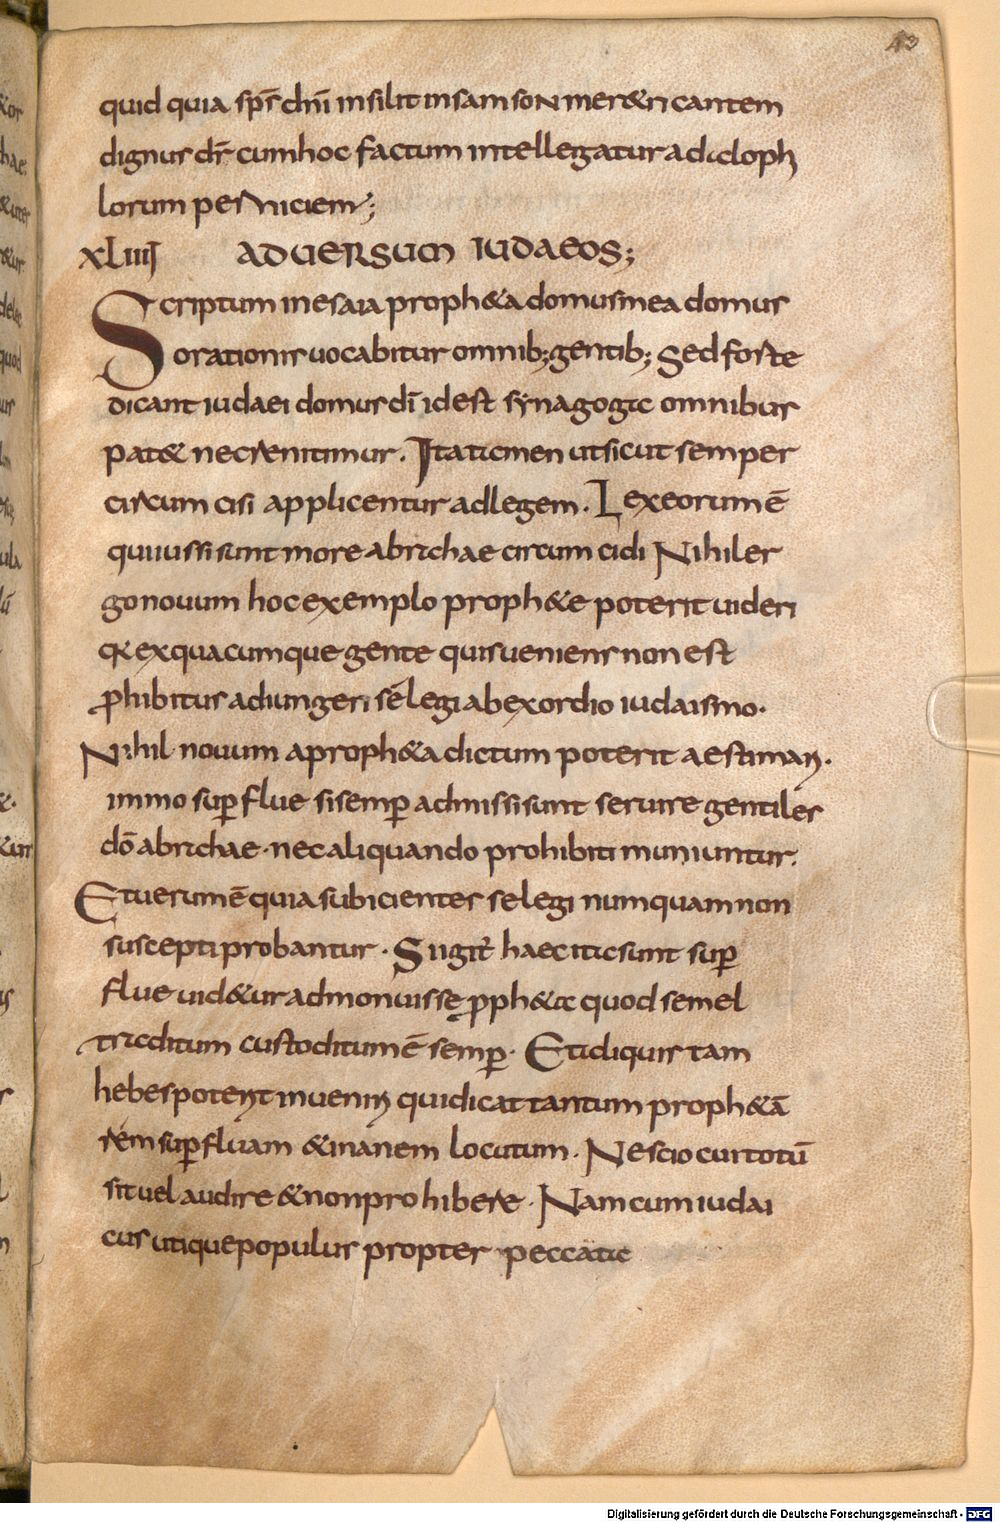 43
quid quia sp̄s dn̄i insilit in samson meretricantem
dignus dr̄ cum hoc factum intellegatur ad icloph
lorum perniciem;
XLIIIJ ADUERSUM IUDAEOS;
Scriptum in esaia proph&a domus mea domus
orationis uocabitur omnib; gentib; Sed forte
dicant iudaei domus dī id est synagogae omnibus
pat& nec renitimur. Ita tamen ut sicut semper
circumcisi applicentur ad legem. Lex eorum ē
qui iussi sunt more abrahae circumcidi Nihil er
go nouum hoc exemplo proph&e poterit uideri
q& ex quacumque gente quis ueniens non est
ꝓhibitus adiungeri sē legi ab exordio iudaismo.
Nihil nouum a proph&a dictum poterit aestimari.
immo suꝑflue si semꝑ admissi sunt seruire gentiles
dō abrahae. nec aliquando prohibiti muniuntur.
Et uerum ē quia subicientes se legi numquam non
suscepti probantur. Si igit̄ haec ita sunt suꝑ
flue uid&ur admonuisse ꝓph&ae quod semel
traditum custoditum ē semꝑ. Et aliquis tam
hebes potest inueniri qui dicat tantum proph&ā
rem suꝑfluam & inanem locutum. Nescio cur totū
sit uel audire & non prohibere. Nam cum iudai
cus utique populus propter peccata
Digitalisierung gefördert durch die Deutsche Forschungsgemeinschaft - DFG